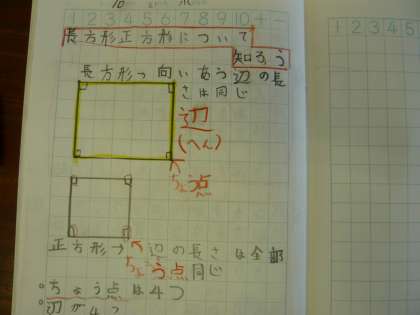 1 2 3 4 5 6 7 8 9 10
長方形正方形について
知ろう
長方形→向いあう辺の長
さは同じ
辺
(へん)
ちょう点
正方形→辺の長さは全部
ちょう点 同じ
。ちょう点は4つ
。辺が4つ
1 2 3 4 5